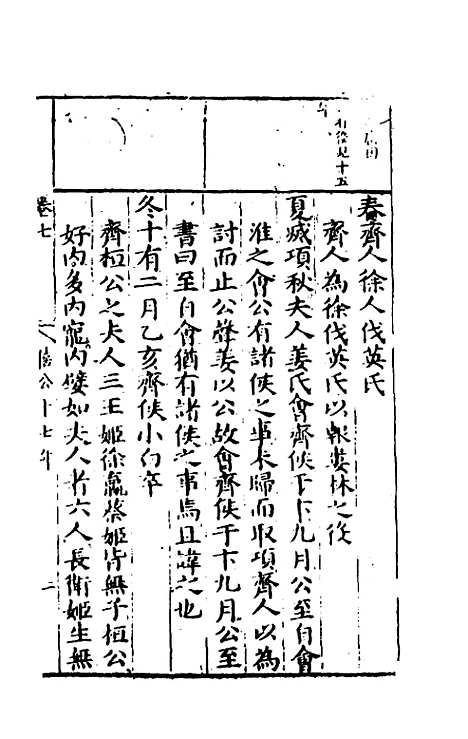 春齊人徐人伐英氏
齊人為徐伐英氏以報婁林之役
夏滅項秋夫人姜氏會齊侯于卞九月公至自會
淮之會公有諸侯之事未歸而取項齊人以為
討而止公聲姜以公故會齊侯于卞九月公至
書曰至自會猶有諸侯之事焉且諱之也
冬十有二月乙亥齊侯小白卒
齊桓公之夫人三王姬徐嬴蔡姬皆無子桓公
好內多內寵內嬖如夫人者六人長衛姬生無
卷七
僖公十七年
二
役見十五